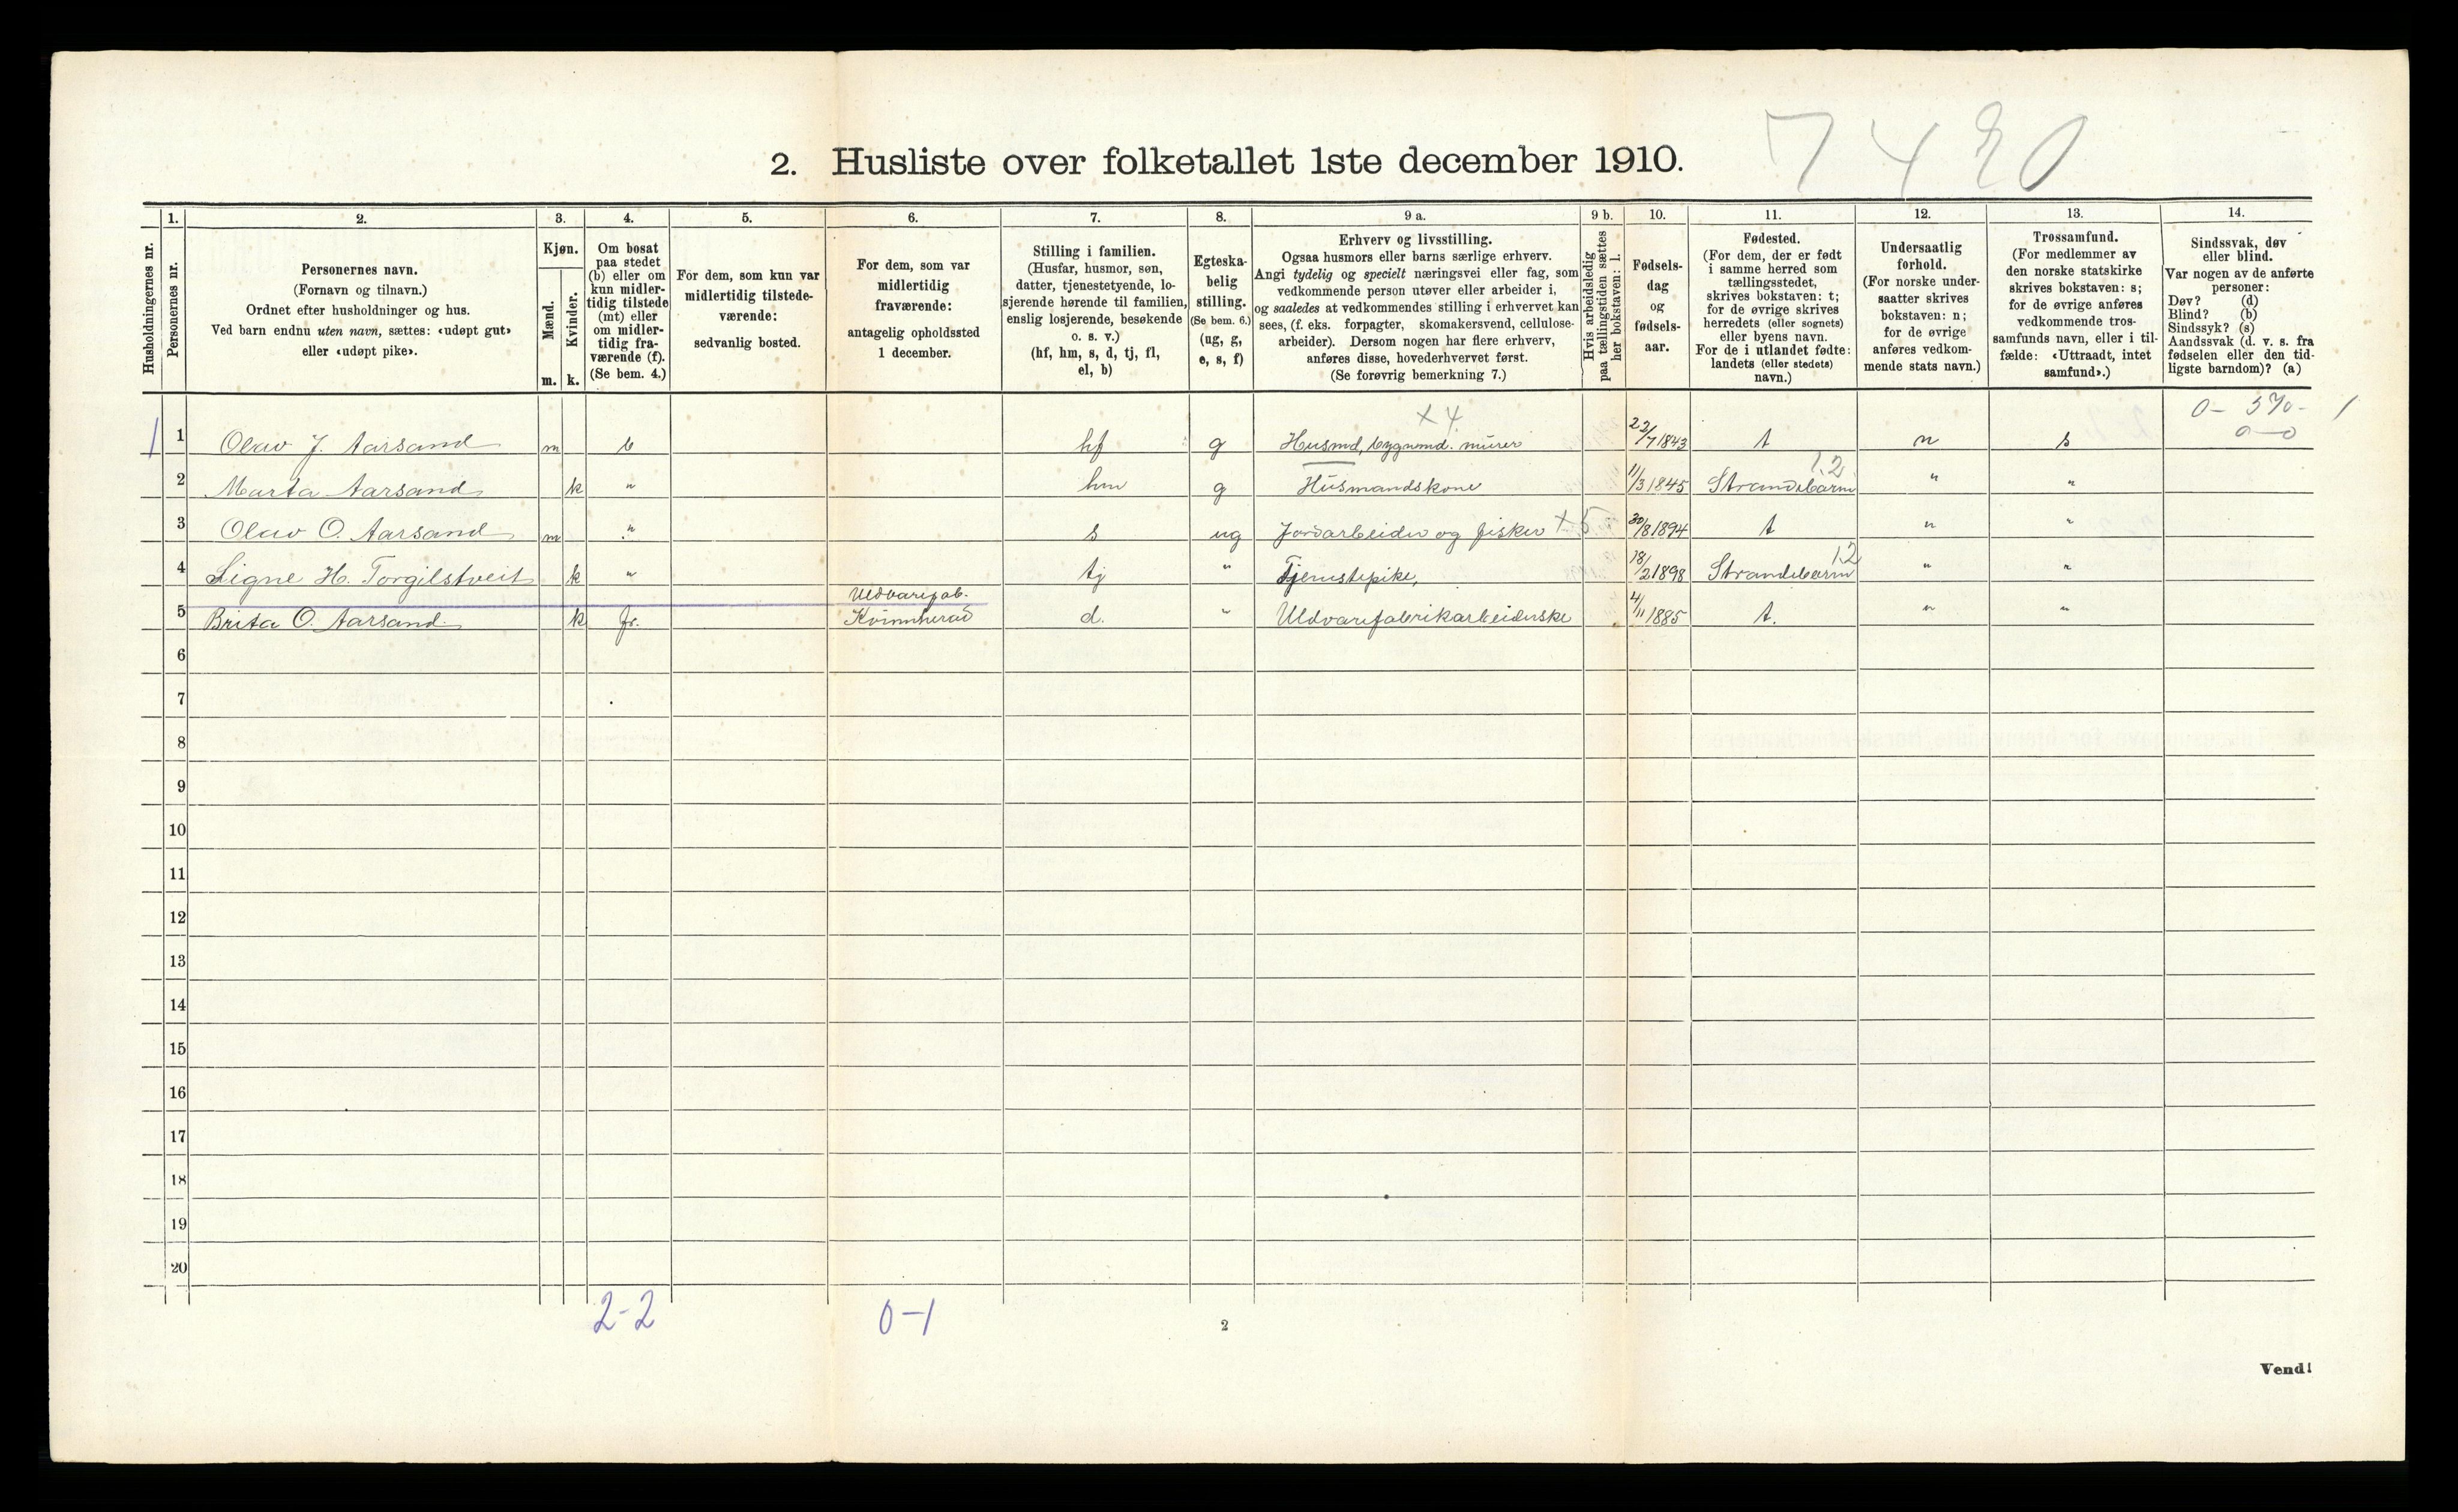 7420
2. Husliste over folketallet 1ste december 1910.
Husholdningernes nr.
1.
Personernes nr.
2.
Personernes navn.
(Fornavn og tilnavn.)
Ordnet efter husholdninger og hus.
Ved barn endnu uten navn, sættes: «udøpt gut»
eller «udøpt pike».
3.
Kjøn.
Mænd.
m.
Kvinder.
k.
4.
Om bosat
paa stedet
(b) eller om
kun midler-
tidig tilstede
(mt) eller
om midler-
tidig fra-
værende (f).
(Se bem. 4.)
5.
For dem, som kun var
midlertidig tilstede-
værende:
sedvanlig bosted.
6.
For dem, som var
midlertidig
fraværende:
antagelig opholdssted
1 december.
7.
Stilling i familien.
(Husfar, husmor, søn,
datter, tjenestetyende, lo-
sjerende hørende til familien,
enslig losjerende, besøkende
o. s. v.)
(hf, hm, s, d, tj, fl,
el, b)
8.
Egteska-
belig
stilling.
(Se bem. 6.)
(ug, g,
e, s, f)
9 a.
Erhverv og livsstilling.
Ogsaa husmors eller barns særlige erhverv.
Angi tydelig og specielt næringsvei eller fag, som
vedkommende person utøver eller arbeider i,
og saaledes at vedkommendes stilling i erhvervet kan
sees, (f. eks. forpagter, skomakersvend, cellulose-
arbeider). Dersom nogen har flere erhverv,
anføres disse, hovederhvervet først.
(Se forøvrig bemerkning 7.)
9 b.
Hvis arbeidsledig
paa tællingstiden sættes
her bokstaven: l.
10.
Fødsels-
dag
og
fødsels-
aar.
11.
Fødested.
(For dem, der er født
i samme herred som
tællingsstedet,
skrives bokstaven: t;
for de øvrige skrives
herredets (eller sognets)
eller byens navn.
For de i utlandet fødte:
landets (eller stedets)
navn.)
12.
Undersaatlig
forhold.
(For norske under-
saatter skrives
bokstaven: n;
for de øvrige
anføres vedkom-
mende stats navn.)
13.
Trossamfund.
(For medlemmer av
den norske statskirke
skrives bokstaven: s;
for de øvrige anføres
vedkommende tros-
samfunds navn, eller i til-
fælde: «Uttraadt, intet
samfund».)
14.
Sindssvak, døv
eller blind.
Var nogen av de anførte
personer:
Døv? (d)
Blind? (b)
Sindssyk? (s)
Aandssvak (d. v. s. fra
fødselen eller den tid-
ligste barndom)? (a)
x 4.
0-0
1 1 Olav J. Aarsand m b hf g Husmd, bygnmd. murer 22/7 1843 t n s
12
2 Marta Aarsand k " hm g Husmandskone 11/3 1845 Strandebarm " "
3 Olav O. Aarsand m " s ug Jordarbeider og fisker x 5 30/8 1894 t " "
12
4 Signe H. Torgilstveit k " tj " Tjenestepike, 18/2 1898 Strandebarm " "
Uldvarefab.
5 Brita O. Aarsand k fr. Kvinnherad d. " Uldvarefabrikarbeiderske 4/11 1885 t. " "
6
7
8
9
10
11
12
13
14
15
16
17
18
19
20
2-2 0-1
2
Vend!